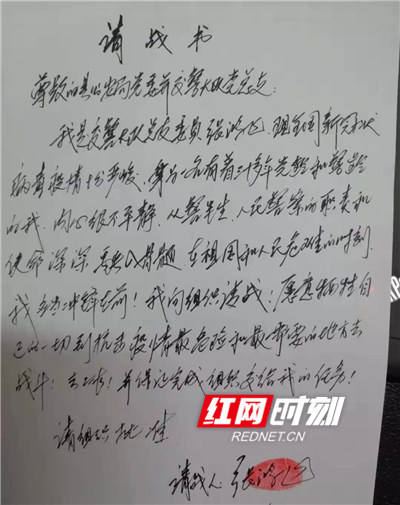 请战书
尊敬的县公安局党委并交警大队党总支：
我是交警大队总支委员张鸿飞，现全国新冠状
病毒疫情十分严峻，身为一名有着三十多年党龄和警龄
的我，内心很不平静，从警半生，人民警察的职责和
使命深深融入骨髓，在祖国和人民危难的时刻，
我应当冲锋在前！我向组织请战：愿意牺牲自
己的一切到抗击疫情最危险和最需要的地方去
战斗！去工作！并保证完成组织交给我的任务！
请组织批准
请战人：张鸿飞
红网时刻
REDNET.CN